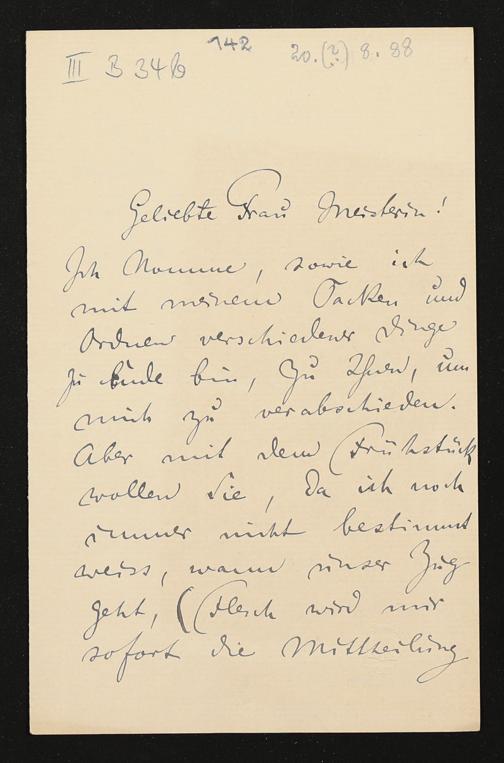 142
III B 34b 20.(?) 8. 88
Geliebte Frau Meisterin!
Ich komme, sowie ich
mit meinem Packen und
Ordnen verschiedener Dinge
zu Ende bin, zu Ihnen, um
mich zu verabschieden.
Aber mit dem Frühstück
wollen Sie, da ich noch
immer nicht bestimmt
weiss, wann unser Zug
geht, (Flesch wird mir
sofort die Mittheilung